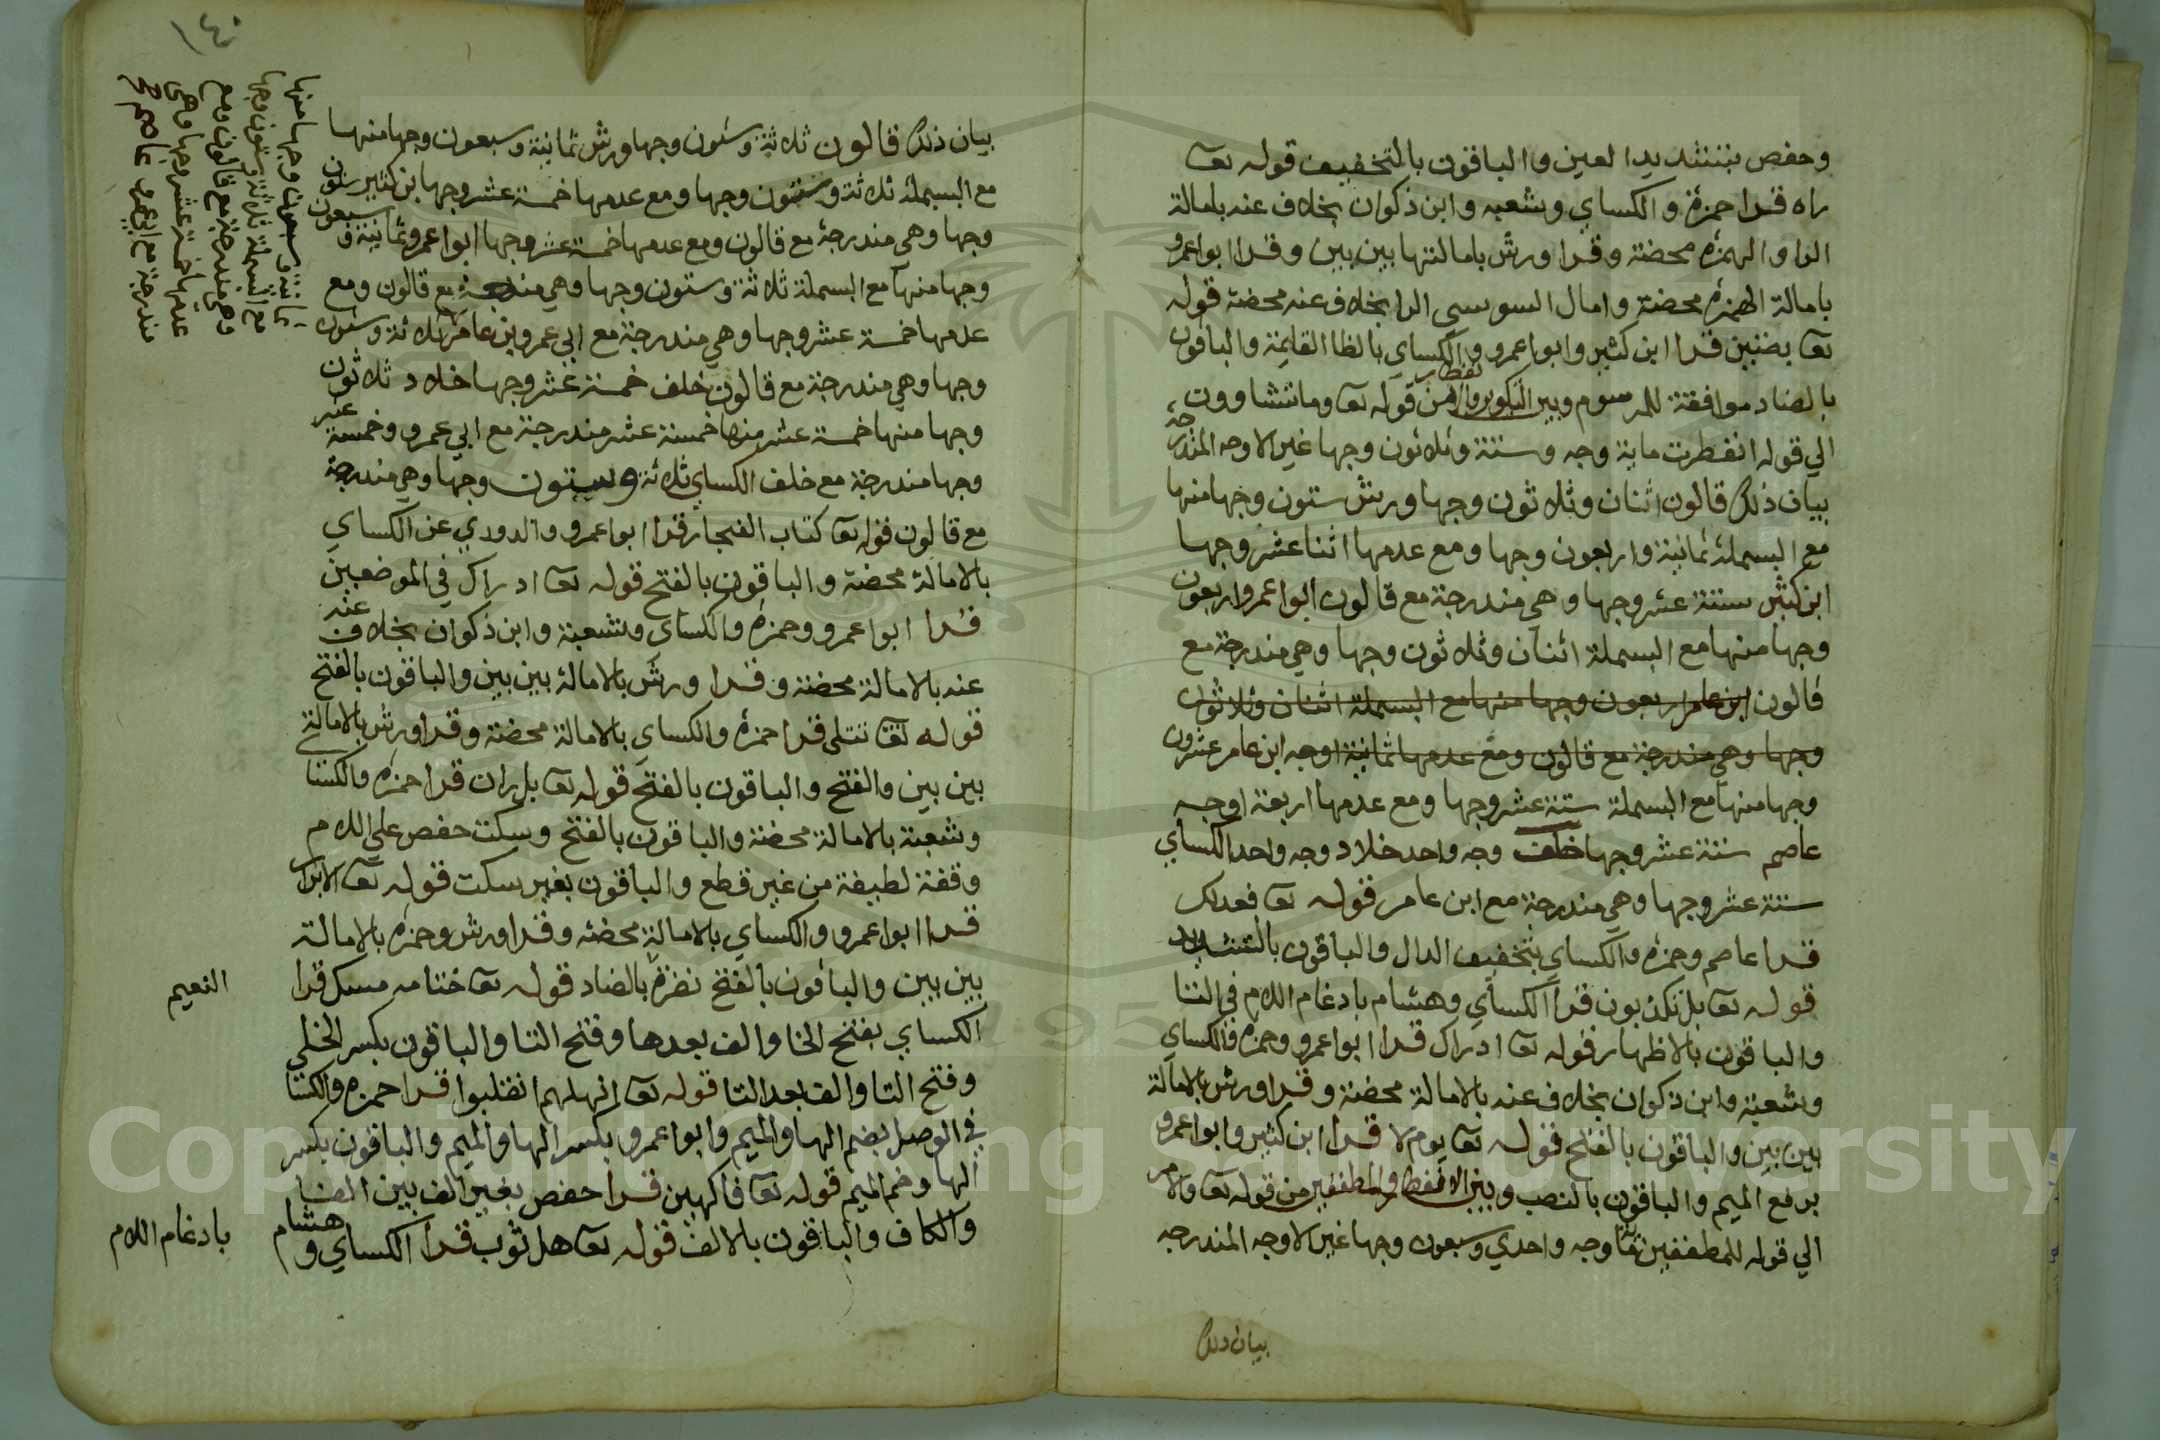 وحفص بتشديد العين والباقون بالتخفيف قوله تعا
راه قرا حمزة والكساي وشعبه وابن ذكوان بخلاف عنه بامالة
الرا والهمزه محضة وقرا ورش بامالتها بين بين وقرا ابو اعمرو
بامالة الهمزه محضة وامال السوسي الرا بخلاف عنه محضة قوله
تعا بضنين قرا ابن كثير وابو اعمرو والكساي بالظا القايمة والباقون
بالضاد موافقة للمرسوم وبين التكوير والانفطار من قوله تعا وما تشاوون
الي قوله انفطرت ماية وجه وستة وثلاثون وجها غير الاوجه المندرجة
بيان ذلك قالون اثنان وثلاثون وجها ورش ستون وجها منها
مع البسملة ثمانية واربعون وجها ومع عدمها اثنا عشر وجها
ابن كثير ستة عشر وجها وهي مندرجة مع قالون ابو اعمرو اربعون
وجها منها مع البسملة اثنان وثلاثون وجها وهي مندرجة مع
قالون ابن عامر اربعون وجها منها مع البسملة اثنان وثلاثون
وجها وهي مندرجة مع قالون ومع عدمها ثمانية اوجه ابن عامر عشرون
وجها منها مع البسملة ستة عشر وجها ومع عدمها اربعة اوجه
عاصم ستة عشر وجها خلف وجه واحد خلاد وجه واحد الكساي
ستة عشر وجها وهي مندرجة مع ابن عامر قوله تعا فعدلك
قرا عاصم وحمزه والكساي بتخفيف الدال والباقون بالتشديد
قوله تعا بل تكذبون قرا الكساي وهشام بادغام اللام في التا
والباقون بالاظهار قوله تعا ادراك قرا ابو اعمرو وحمزه والكساي
وشعبة وابن ذكوان بخلاف عنه بالامالة محضة وقرا ورش بالامالة
بين بين والباقون بالفتح قوله تعا يوم لا قرا ابن كثير وابو اعمرو
برفع الميم والباقون بالنصب وبين الانفطار والمطففين من قوله تعا والامر
الي قوله للمطففين وجه واحدي وسبعون وجها غير الاوجه المندرجه
بيان ذلك
١٤٠
بيان ذلك قالون ثلاثة وستون وجها ورش ثمانية وسبعون وجها منها
مع البسملة ثلاثة وستون وجها ومع عدمها خمسة عشر وجها ابن كثير ستون
وجها وهي مندرجة مع قالون ومع عدمها خمسة عشر وجها ابو اعمرو ثمانية وسبعون
وجها منها مع البسملة ثلاثة وستون وجها وهي مندرجة مع قالون ومع
عدمها خمسة عشر وجها وهي مندرجة مع ابي عمرو بن عامر ثلاثة وستون
وجها وهي مندرجة مع قالون خلف خمسة عشر وجها خلاد ثلاثون
وجها منها خمسة عشر منها خمسة عشر مندرجة مع ابي عمرو وخمسة عشر
وجها مندرجة مع خلف الكساي ثلاثة وستون وجها وهي مندرجة
مع قالون قوله تعا كتاب الفجار قرا ابو اعمرو والدوري عن الكساي
بالامالة محضة والباقون بالفتح قوله تعا ادراك في الموضعين
قرا ابو اعمرو وحمزه والكساي وشعبة وابن ذكوان بخلاف عنه
عنه بالامالة محضة وقرا ورش بالامالة بين بين والباقون بالفتح
قوله تعا تتلي قرا حمزه والكساي بالامالة محضة وقرا ورش بالامالة
بين بين والفتح والباقون بالفتح قوله تعا بل ران قرا حمزه والكسا
وشعبة بالامالة محضة والباقون بالفتح وسكت حفص علي اللام
وقفة لطيفة من غير قطع والباقون بغير سكت قوله تعا الابرار
قرا ابو اعمرو والكساي بالامالة محضه وقرا ورش وحمزه بالامالة
بين بين والباقون بالفتح نضرة بالضاد قوله تعا ختامه مسك قرا
الكساي بفتح الخا والف بعدها وفتح التا والباقون بكسر الخا
وفتح التا والف بعد التا قوله تعا اهلهم انقلبوا قرا حمزه والكسا
في الوصل بضم الها والميم وابو اعمرو بكسر الها والميم والباقون بكسر
الها وضم الميم قوله تعا فاكهين قرا حفص بغير الف بين الفا
والكاف والباقون بالالف قوله تعا هل ثوب قرا الكساي وهشام
ثمانية وسبعون وجها منها
مع البسملة ثلاثة وستون وجها
وهي مندرجة مع قالون ومع
عدمها خمسة عشر وجها وهي
مندرجة مع ابي عمرو عاصم
النعيم
بادغام اللام